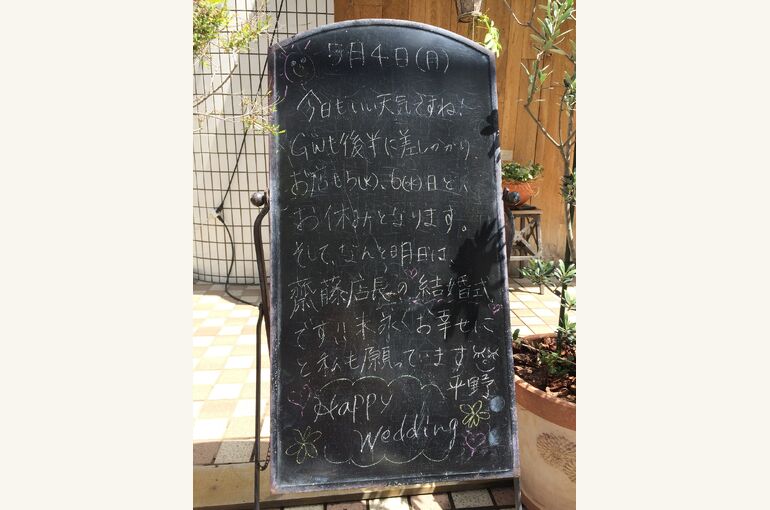 5月4日(月)
今日もいい天気ですね!
GWも後半に差しかかり、
お店も5(火)、6(水)日と、
お休みとなります。
そして、なんと明日は、
齋藤店長の結婚式
です!!末永くお幸せに
と私も願っています
平野
Happy
Wedding